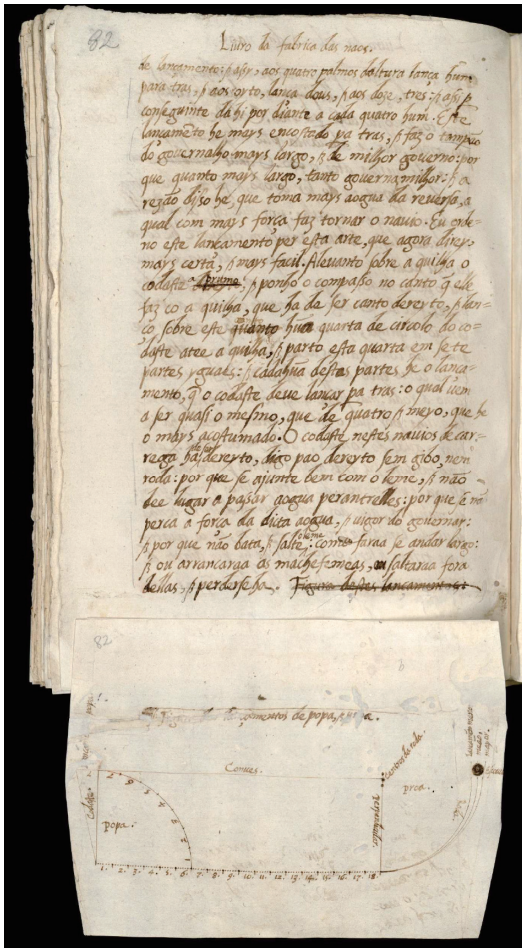 82
Liuro da fabrica das naos.
de lançamento: & assy, aos quatro palmos daltura lança hum
para tras, & aos oyto, lança dous, & aos doze, tres: & assi &
conseguinte dahi por diante a cada quatro hum. Este
lançamẽto he mays encostado pa tras, & faz o tampão
do gouernalho mays largo, & de milhor gouerno: por
que quanto mays largo, tanto gouerna milhor: & a
rezão disso he, que toma mays aogua da reuersa, a
qual com mays força faz tornar o nauio. Eu orde-
no este lançamento per esta arte, que agora direy
mays certa, & mays facil. Aleuanto sobre a quilha o
codaste a prumo, & ponho o compasso no canto q̃ elle
faz co a quilha, que ha de ser canto dereyto, & lan-
ço sobre este quanto hũa quarta de circolo do co-
daste atee a quilha, & parto esta quarta em sete
partes yguaes: & cadahũa destas partes he o lança-
mento, q̃ o codaste deue lançar pa tras: o qual uem
a ser quasi o mesmo, que de quatro & meyo, que he
o mays acostumado. O codaste nestes nauios de car-
rega ha de ser dereyto, digo pao dereyto sem gibo, nem
roda: por que se ajunte bem com o leme, & não
dee lugar a passar aogua perantrelles: por que se não
perca a força da dita aogua, & uigor do gouernar:
& por que não bata, & salte o leme: como faraa se andar largo:
& ou arrancaraa as machefemeas, ou saltaria fora
dellas, & perdersеha. Figura destes lançamentos:
82
lançamentos de popa, & proa.
Conues.
Codaste
popa.
7 6 5 4 3 2 1
centro da roda.
proa.
Roda
1. 2. 3. 4. 5. 6. 7. 8. 9. 10. 11. 12. 13. 14. 15. 16. 17. 18.